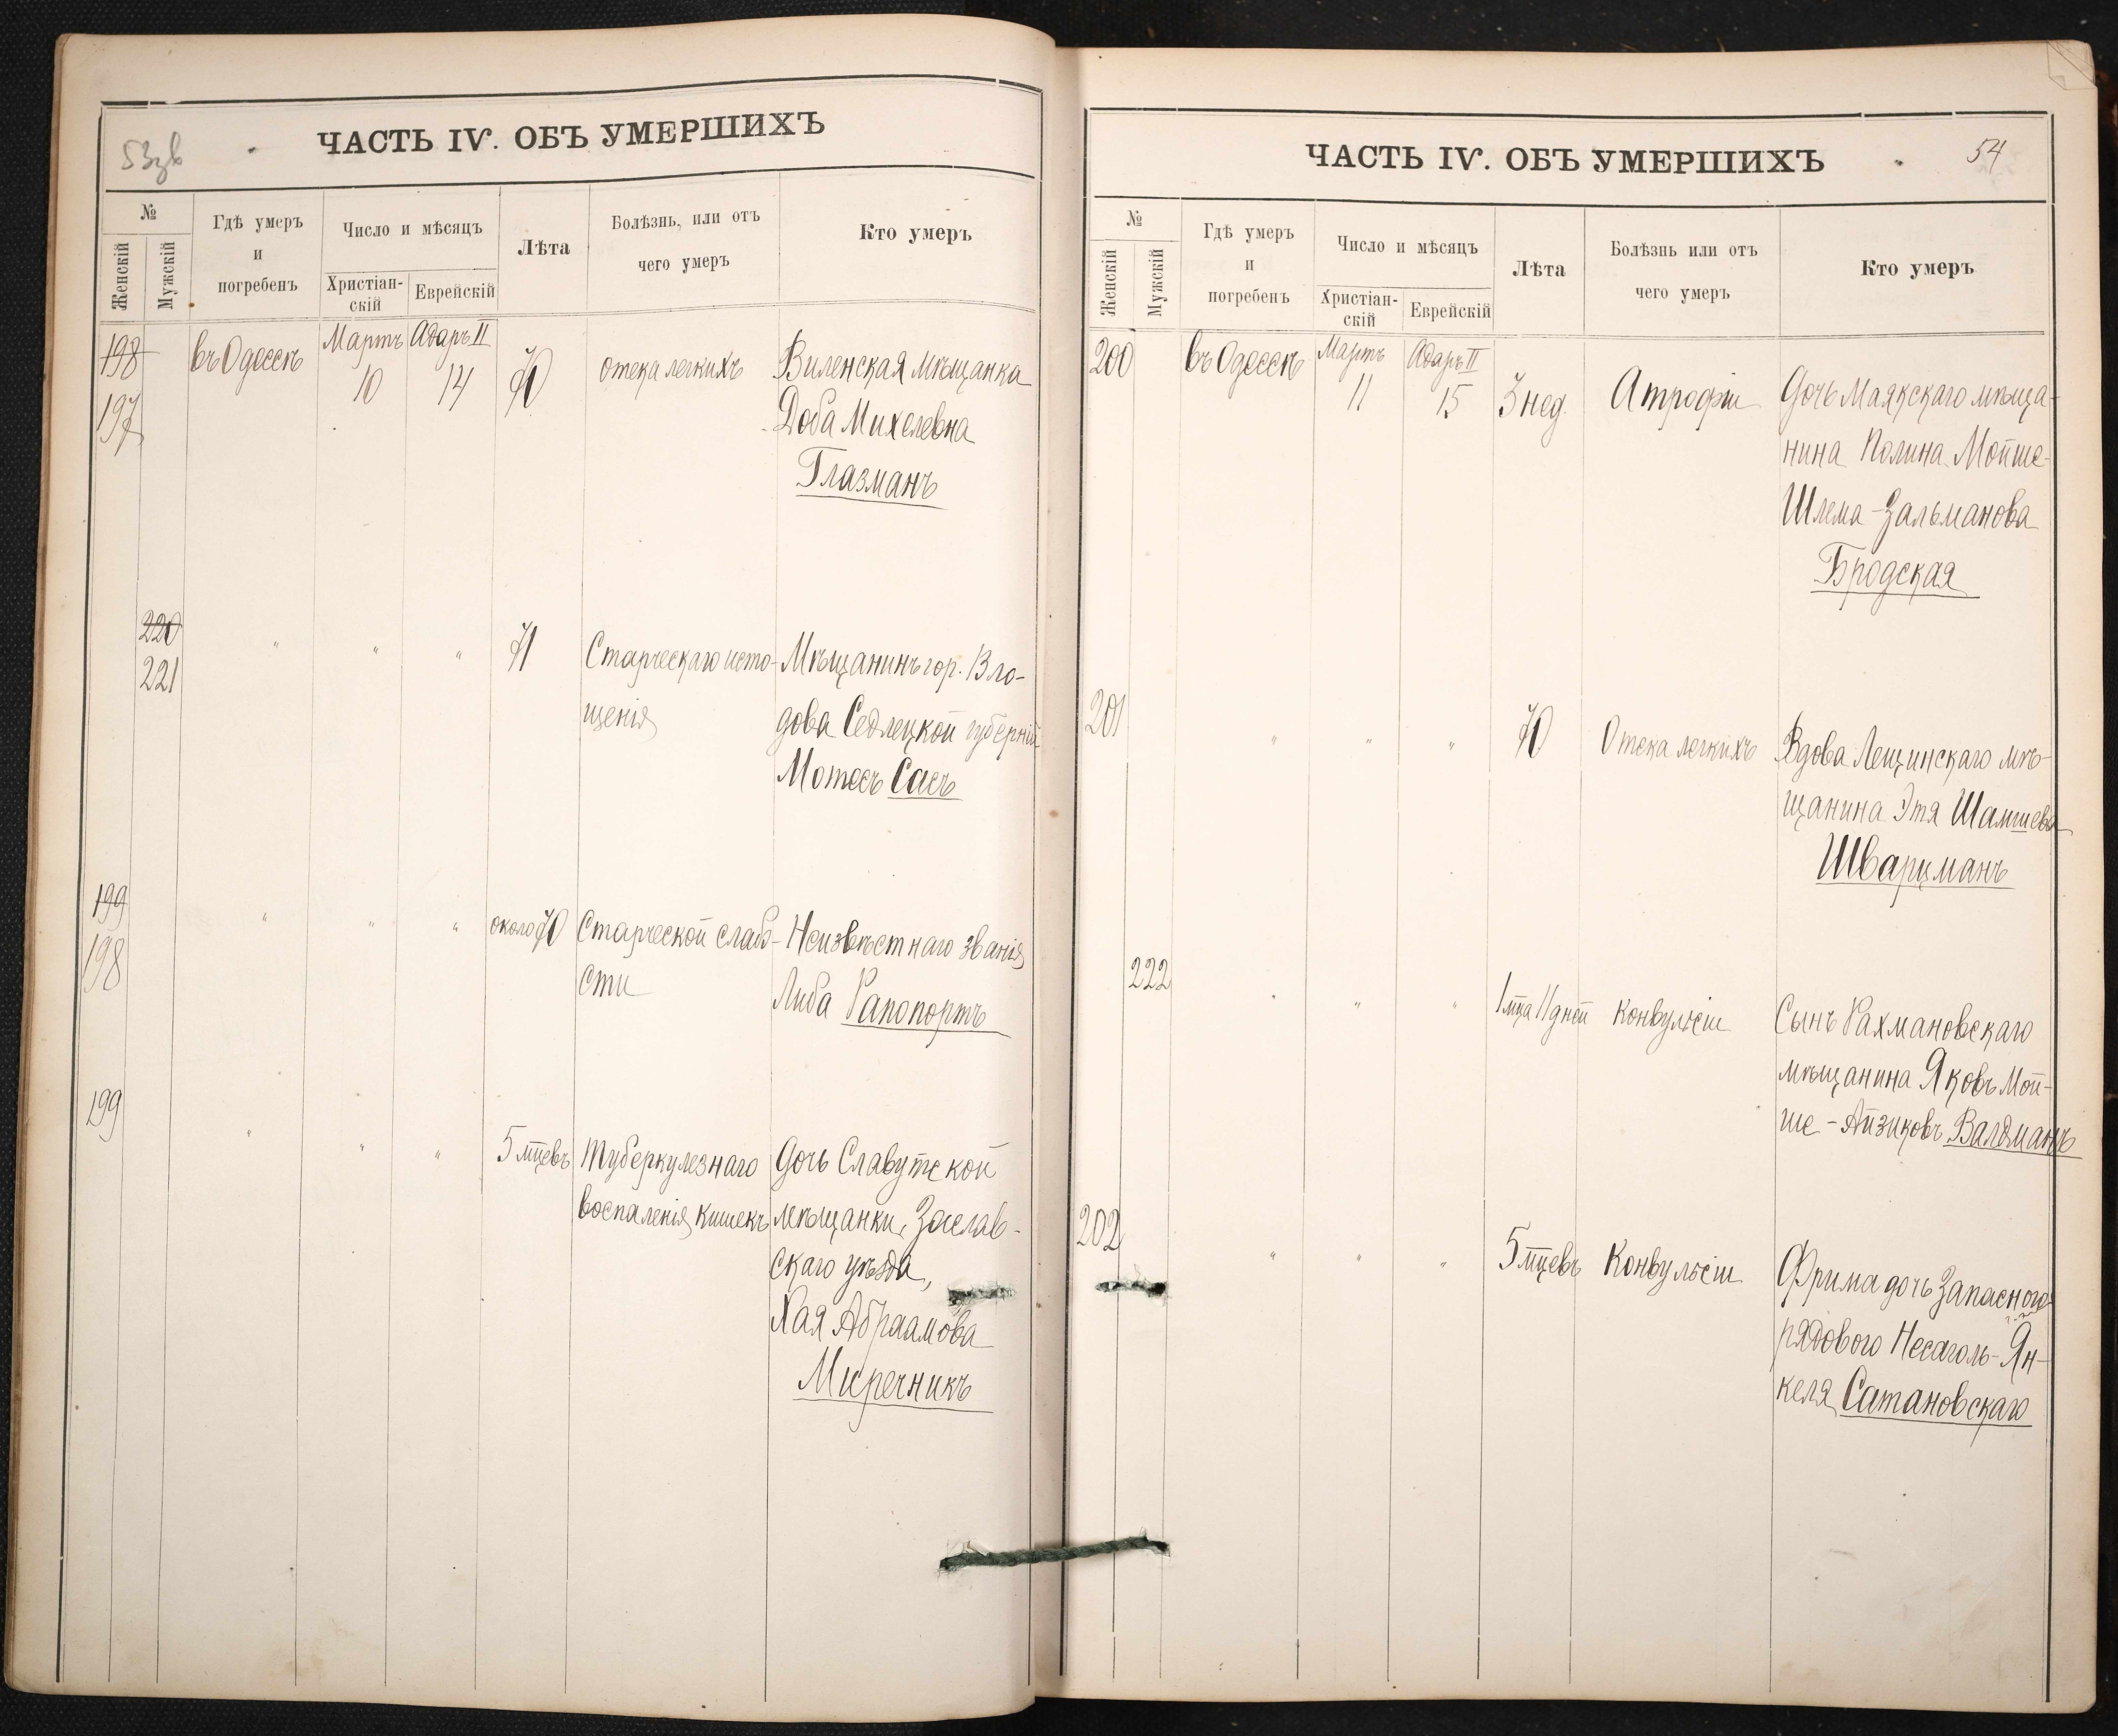 53зв
ЧАСТЬ IV. ОБЪ УМЕРШИХЪ
№
Женскій
Мужскій
Гдѣ умеръ
и
погребенъ
Число и мѣсяцъ
Христіан-
скій
Еврейскій
Лѣта
Болѣзнь, или отъ
чего умеръ
Кто умеръ
198
197
въ Одессѣ
Мартъ
10
Адаръ II
14
70
отека легкихъ
Виленская мѣщанка
Доба Михелевна
Глазманъ
220
221
"
"
"
71
Старческаго исто-
щенія
Мѣщанинъ гор. Вло-
дова Седлецкой губерніи
Мотесъ Сасъ
199
198
"
"
"
около 70
Старческой слабо-
сти
Неизвѣстнаго званія
Либа Рапопортъ
199
"
"
"
5 мцевъ
Туберкулезнаго
воспаленія кишекъ
Дочь Славутской
мѣщанки, Заслав-
скаго уѣзда,
Хая Абраамова
Миречникъ
54
ЧАСТЬ IV. ОБЪ УМЕРШИХЪ
№
Женскій
Мужскій
Гдѣ умеръ
и
погребенъ
Число и мѣсяцъ
Христіан-
скій
Еврейскій
Лѣта
Болѣзнь или отъ
чего умеръ
Кто умеръ
200
въ Одессѣ
Мартъ
11
Адаръ II
15
3 нед.
Атрофіи
Дочь Маякскаго мѣща-
нина Полина Мойше-
Шлема-Зальманова
Бродская
201
"
"
"
70
Отека легкихъ
Вдова Лещинскаго мѣ-
щанина Этя Шамшева
Шварцманъ
222
"
"
"
1 мца 11 дней
Конвульсіи
Сынъ Рахмановскаго
мѣщанина Яковъ Мой-
ше-Айзиковъ Валдманъ
202
"
"
"
5 мцевъ
Конвульсіи
Фрима дочь Запасного
рядового Несаголь-Ян-
келя Сатановскаго